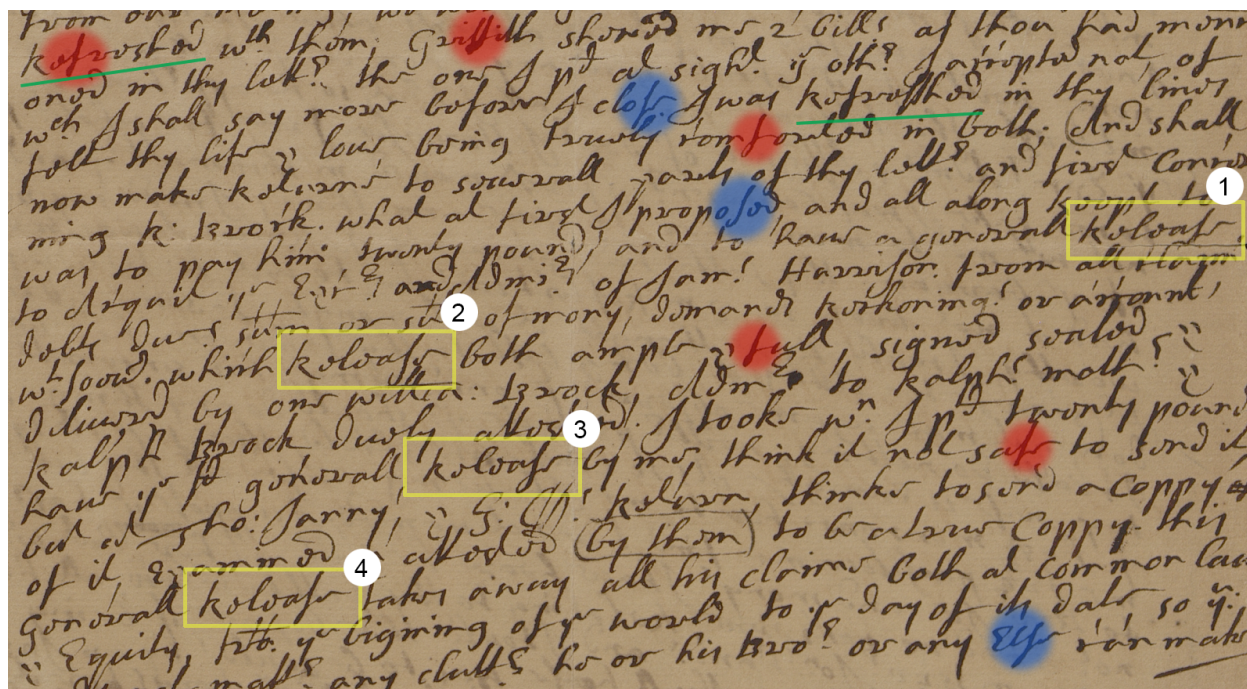 from our
refreshed wth them, Griffith shewed me 2 bills as thou had menti
oned in thy lettr the one I pd at sight ye othr I accepted not, of
wch I shall say more before I close I was refreshed in thy lines
felt thy life & love being truely comforted in both; And shall
now make returne to severall parts of thy lettr and first Concer
ning R: Brock. what at first I proposed, and all along keept to
was to pay him twenty pound, and to have a generall release 1
to Acquit ye Exrs and Admrs of Jam: Harrison from all claim
debts dues sum or sums of mony, demands reckonings or account,
wtsoevr. which release 2 both ample & full signed sealed &
Dilivered by one willm: Brock Admr to Ralph: math: &
Ralph Brock duely attested. I tooke wn I pd twenty pound
have ye sd generall release 3 by me think it not safe to send it
but at Tho: Janny, & G: G: return, thinke to send a Coppy
of it, Examined & attested (by them) to be a true Coppy. this
Generall release 4 takes away all his claime both at common law
& Equity, from ye bigining of ye world to ye day of its date, so yt
math: any clutt he or his Bror or any Else can make